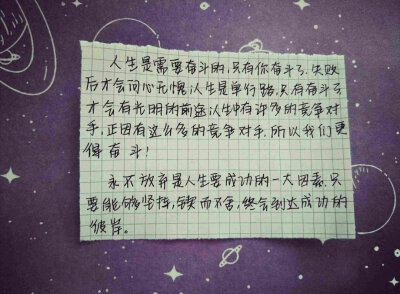 人生是需要奋斗的,只有你奋斗了,失败
后才会问心无愧;人生是单行路,只有奋斗了
才会有光明的前途,人生中有许多的竞争对
手,正因有这么多的竞争对手,所以我们更
得奋斗!
永不放弃是人生要成功的一大因素,只
要能够坚持,锲而不舍,终会到达成功的
彼岸。